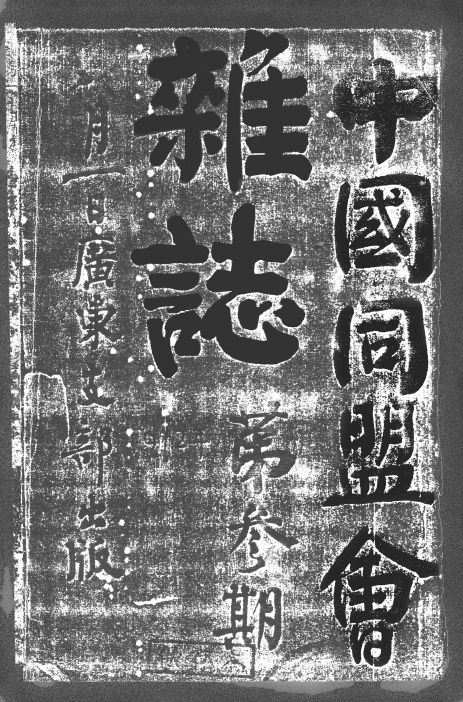 中國同盟會
雜誌
第參期
月一日廣東支部出版